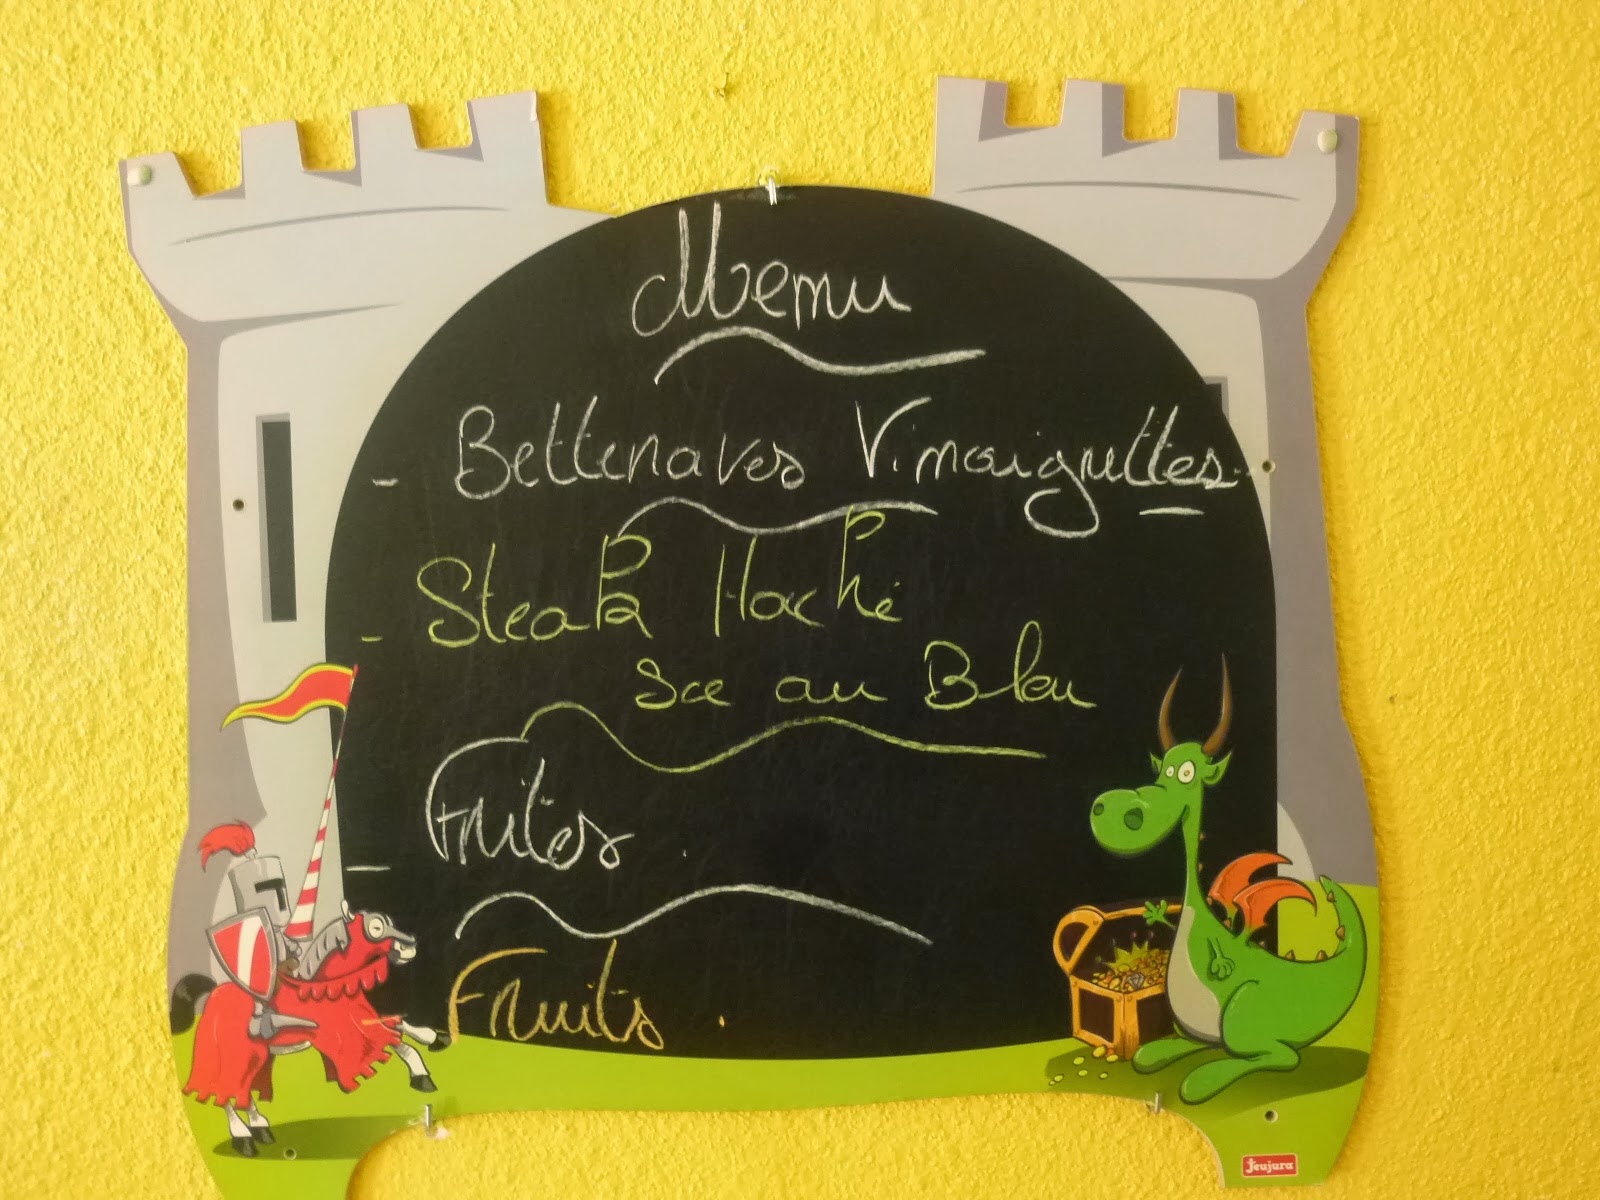 Menu
- Betteraves Vinaigrettes.
- Steak Haché
Sce au Bleu
- Frites.
Fruits.
Jeujura